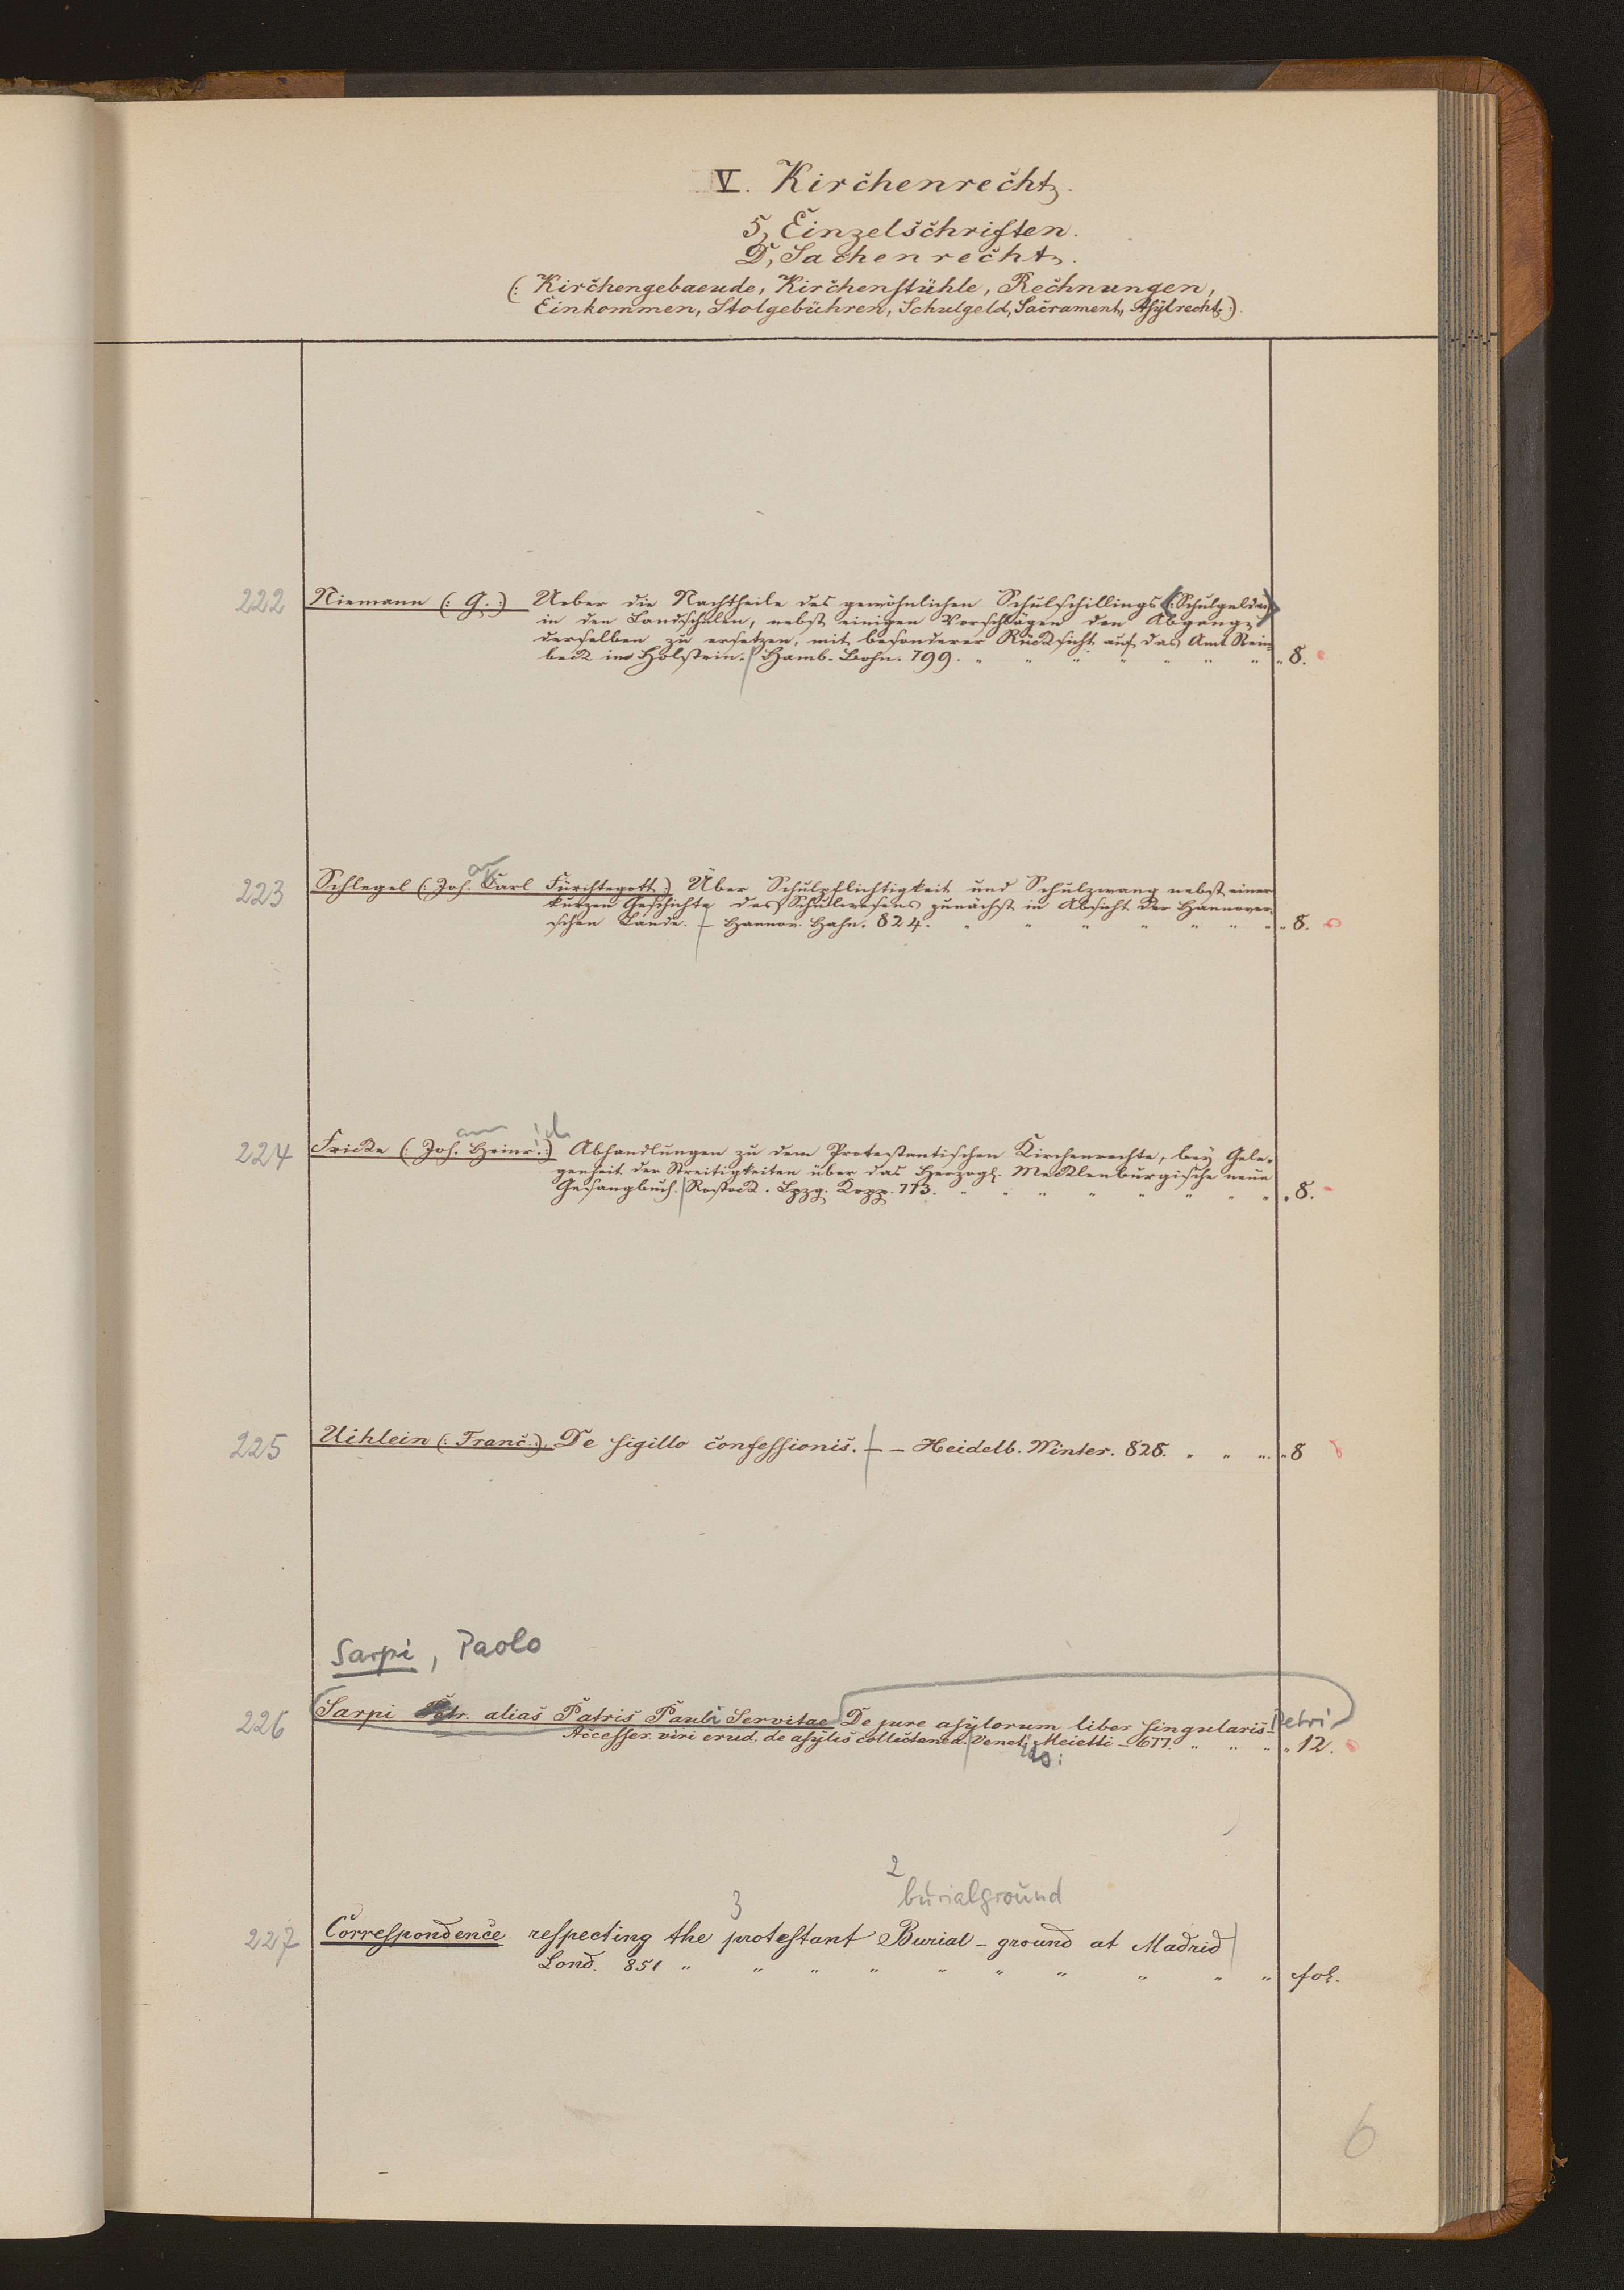 V. Kirchenrecht.
5, Einzelschriften.
D, Sachenrecht.
(: Kirchengebaeude, Kirchenstühle, Rechnungen,
Einkommen, Stolgebühren, Schulgeld, Sacrament, Asÿlrecht :)
222 Niemann (: G. :) Ueber die Nachtheile des gewöhnlichen Schulschillings (: Schulgeldes :)
in den Landschulen, nebst einigen Vorschlägen den Abgang
derselben zu ersetzen, mit besonderer Rücksicht auf das Amt Rein-
beck in Holstein. Hamb. Bohn. 799. " " " " " " " " 8.
223 Schlegel (: Joh. Carl Fürchtegott :) Über Schulpflichtigkeit und Schulzwang nebst einer
kurzen Geschichte des Schulwesens zunächst in Absicht der Hannover-
schen Lande. – Hannov. Hahn. 824. " " " " " " " " 8.
an ich
224 Fricke (: Joh. Heinr. :) Abhandlungen zu dem Protestantischen Kirchenrechte, beÿ Gele-
genheit der Streitigkeiten über das Herzogl. Mecklenburgische neue
Gesangbuch. Rostock. Lpzg. Kopp. 773. " " " " " " " " " 8.
225 Uihlein (: Franc. :) De sigillo confessionis. – – Heidelb. Winter. 828. " " " " 8
Sarpi, Paolo
226 Sarpi Petr. alias Patris Pauli Servitae De jure asÿlorum liber singularis. Petri
Accesser. viri erud. de asÿlis collectanea. Venet. Meietti – 677. " " " " 12.
2
3 burialground
227 Correspondence respecting the protestant Burial – ground at Madrid
Lond. 851 " " " " " " " " " " fol.
6